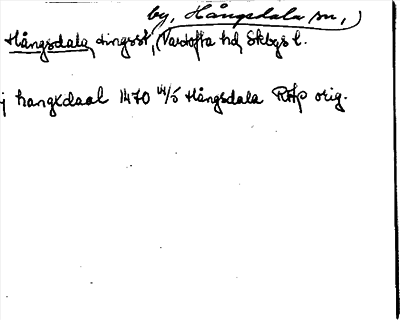 by, Hångsdala sn,
Hångsdala, tingsst, Vartofta hd, Skbgs l.
j hangxdaal 1470 14/5 Hångsdala RAp orig.